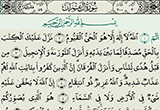 سُورَةُ آلِ عِمْرَانَ
بِسْمِ ٱللَّهِ ٱلرَّحْمَٰنِ ٱلرَّحِيمِ
الٓمٓ ١ ٱللَّهُ لَآ إِلَٰهَ إِلَّا هُوَ ٱلْحَىُّ ٱلْقَيُّومُ ٢ نَزَّلَ عَلَيْكَ ٱلْكِتَٰبَ
بِٱلْحَقِّ مُصَدِّقًا لِّمَا بَيْنَ يَدَيْهِ وَأَنزَلَ ٱلتَّوْرَىٰةَ وَٱلْإِنجِيلَ ٣
مِن قَبْلُ هُدًى لِّلنَّاسِ وَأَنزَلَ ٱلْفُرْقَانَ إِنَّ ٱلَّذِينَ كَفَرُوا۟ بِـَٔايَٰتِ
ٱللَّهِ لَهُمْ عَذَابٌ شَدِيدٌ وَٱللَّهُ عَزِيزٌ ذُو ٱنتِقَامٍ ٤ إِنَّ ٱللَّهَ لَا يَخْفَىٰ عَلَيْهِ
شَىْءٌ فِى ٱلْأَرْضِ وَلَا فِى ٱلسَّمَآءِ ٥ هُوَ ٱلَّذِى يُصَوِّرُكُمْ